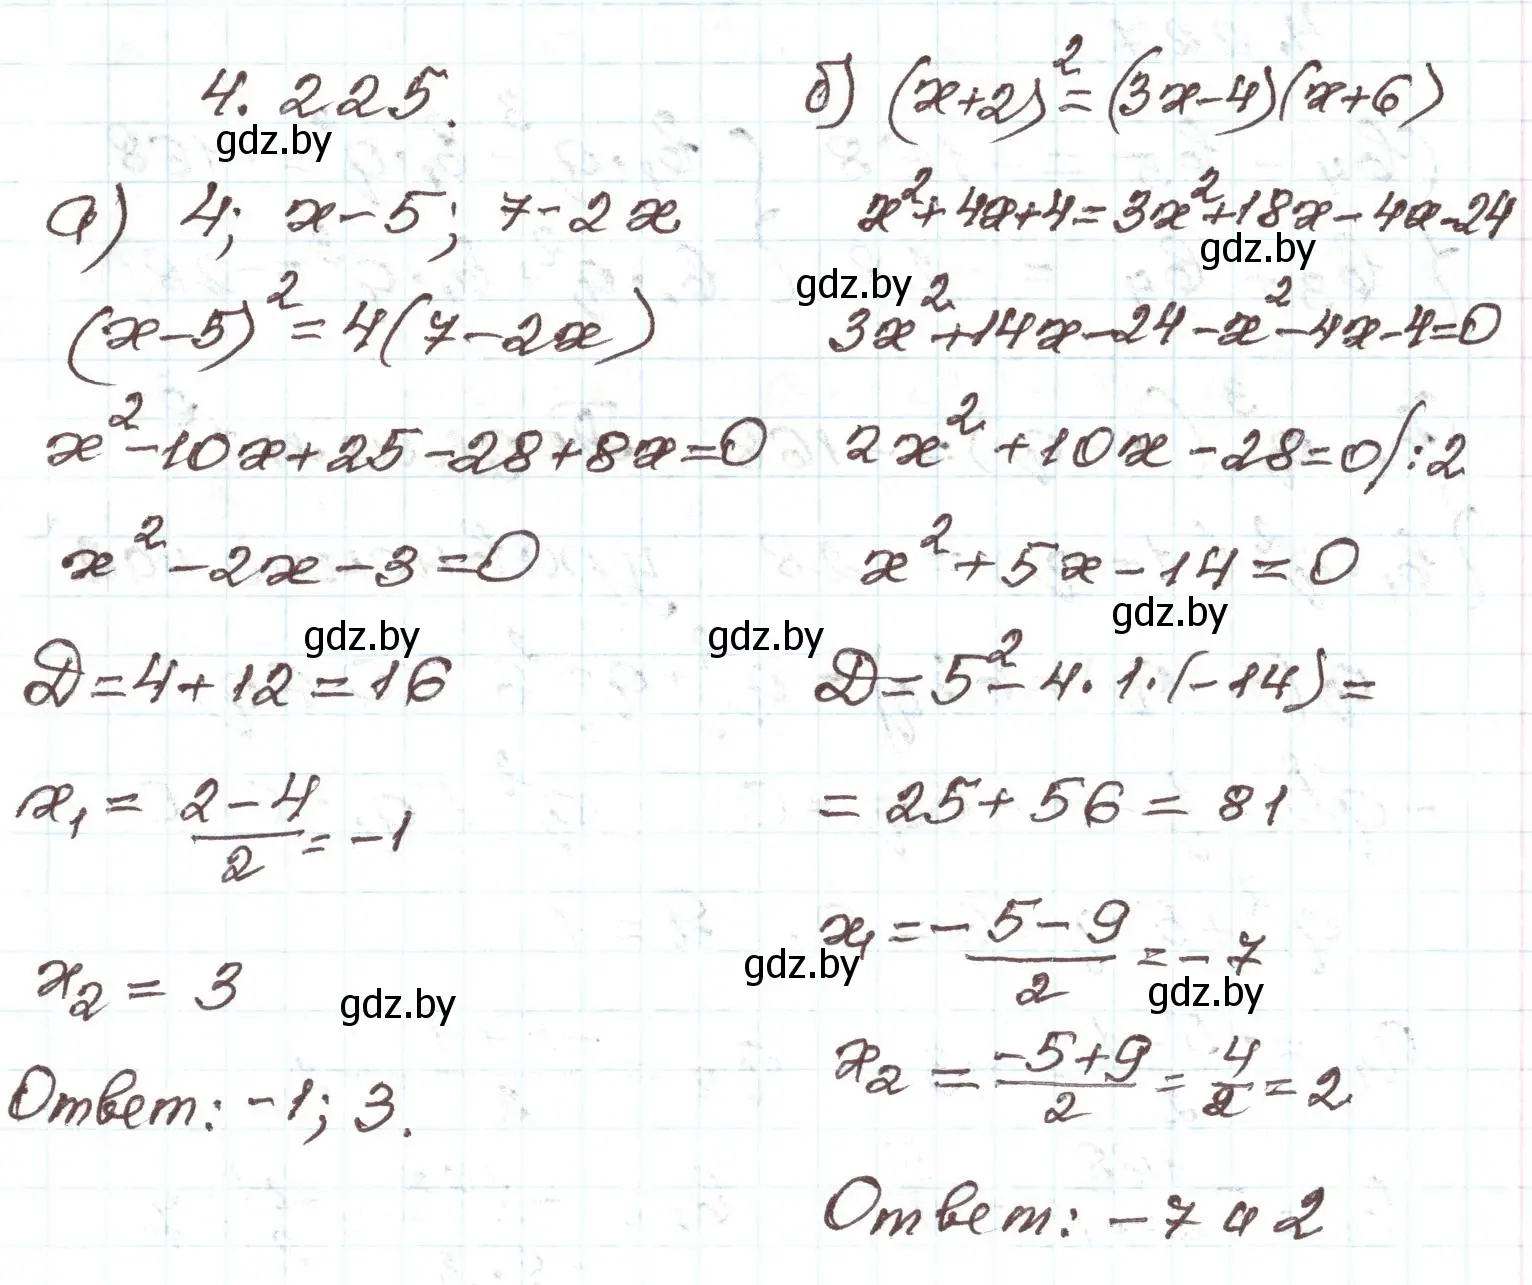 4.225.
gdz.by
а) 4; x-5; 7-2x
(x-5)²=4(7-2x)
x²-10x+25-28+8x=0
x²-2x-3=0
gdz.by
D=4+12=16
x₁= (2-4)/2=-1
x₂= 3
gdz.by
Ответ: -1; 3.
б) (x+2)²=(3x-4)(x+6)
x²+4x+4=3x²+18x-4x-24
gdz.by
gdz.by
3x²+14x-24-x²-4x-4=0
2x²+10x-28=0/:2
x²+5x-14=0
gdz.by
gdz.by
D=5²-4·1·(-14)=
=25+56=81
x₁=-(5-9)/2=-7
gdz.by
gdz.by
x₂=(-5+9)/2=4/2=2
Ответ: -7 и 2